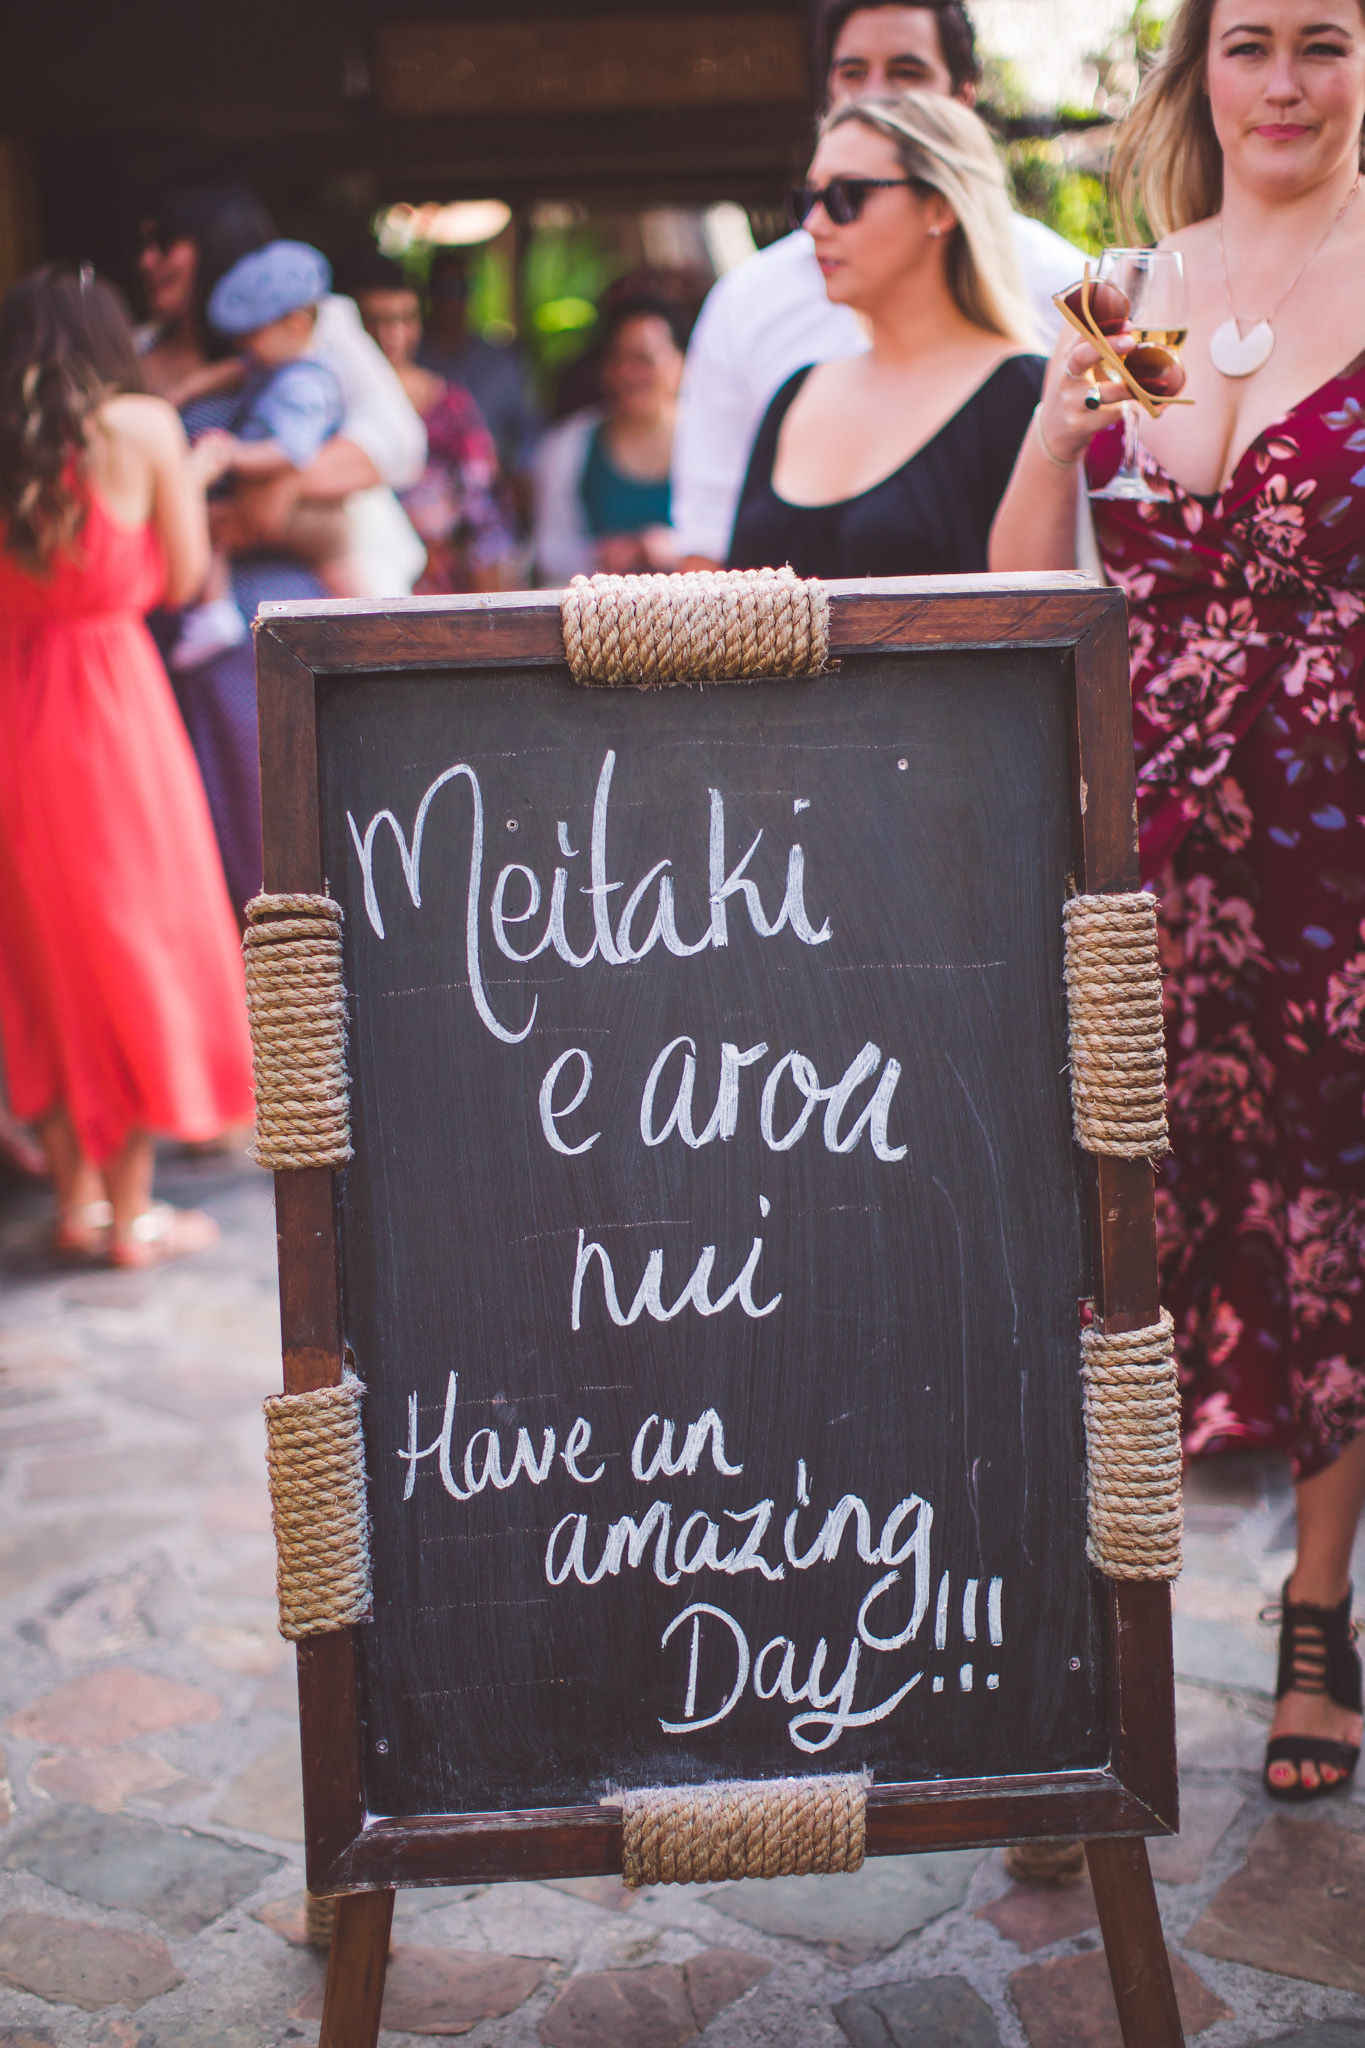 Meitaki
e aroa
nui
Have an
amazing
Day!!!